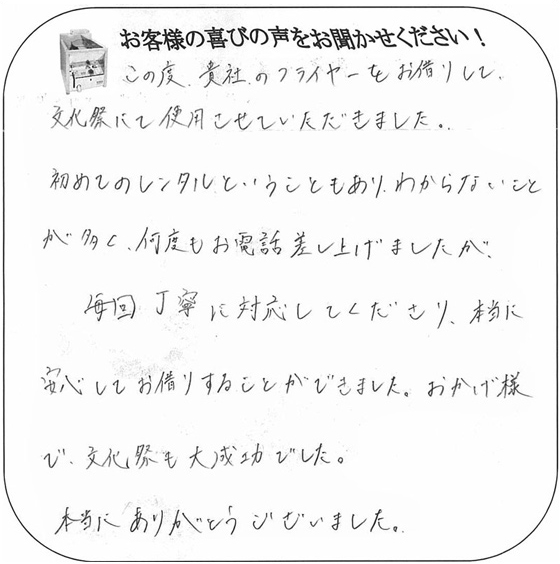 お客様の喜びの声をお聞かせください！
この度、貴社のフライヤーをお借りして、
文化祭にて使用させていただきました。
初めてのレンタルということもあり、わからないこと
が多く、何度もお電話差し上げましたが、
毎回丁寧に対応してくださり、本当に
安心してお借りすることができました。おかげ様
で、文化祭も大成功でした。
本当にありがとうございました。